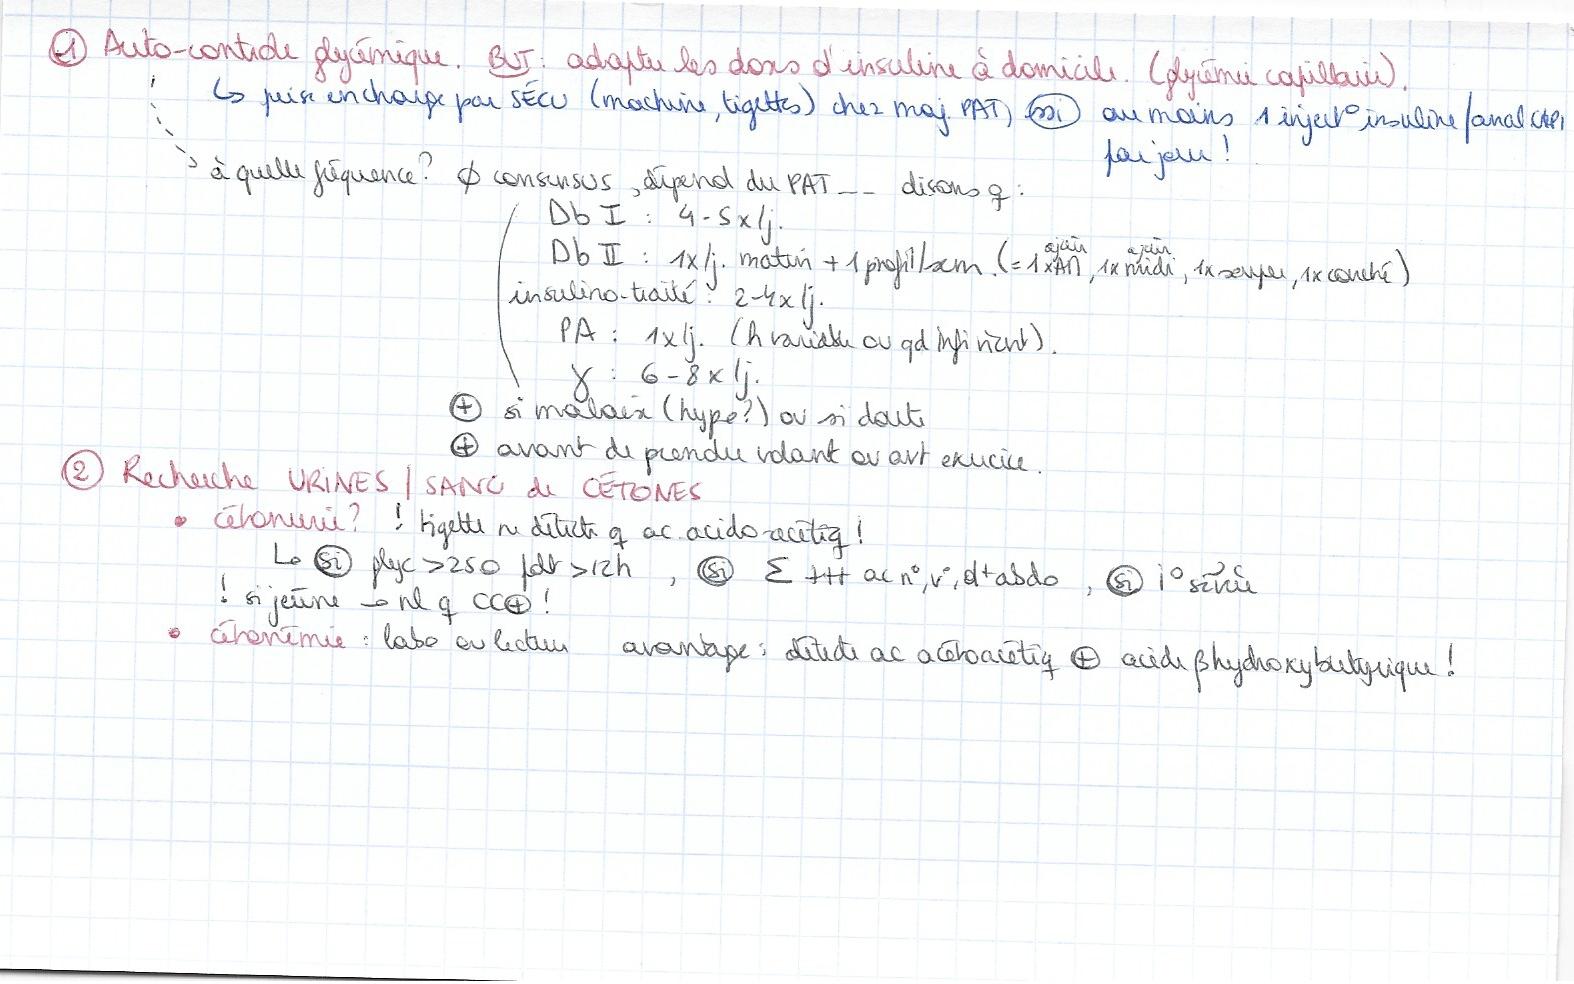 ① Auto-contrôle glycémique. BUT: adapter les doses d'insuline à domicile. (glycémie capillaire).
↳ prise en charge par SÉCU (machine, tigettes) chez maj. PAT, ssi au moins 1 inject° insuline/anal
par jour !
à quelle fréquence? ∅ consensus, dépend du PAT -- disons q:
Db I : 4-5x/j.
ajeûn ajeûn
Db II : 1x/j. matin + 1 profil/sem. (= 1xAM, 1x midi, 1x souper, 1x couché)
insulino-traité: 2-4x/j.
PA : 1x/j. (h variable ou qd infi vient).
: 6-8x/j.
⊕ si malaise (hypo?) ou si doute
⊕ avant de prendre volant ou avt exercice.
② Recherche URINES / SANG de CÉTONES
• cétonurie? ! tigette ne détecte q ac. acido-acétiq!
↳ Si glyc >250 pdt >12h , Si Σ +++ ac n°, v°, d+ abdo , Si i° sévère
! si jeûne → nl q CC⊕ !
• cétonémie : labo ou lecteur avantage: détecte ac acétoacétiq ⊕ acide βhydroxybutyrique !